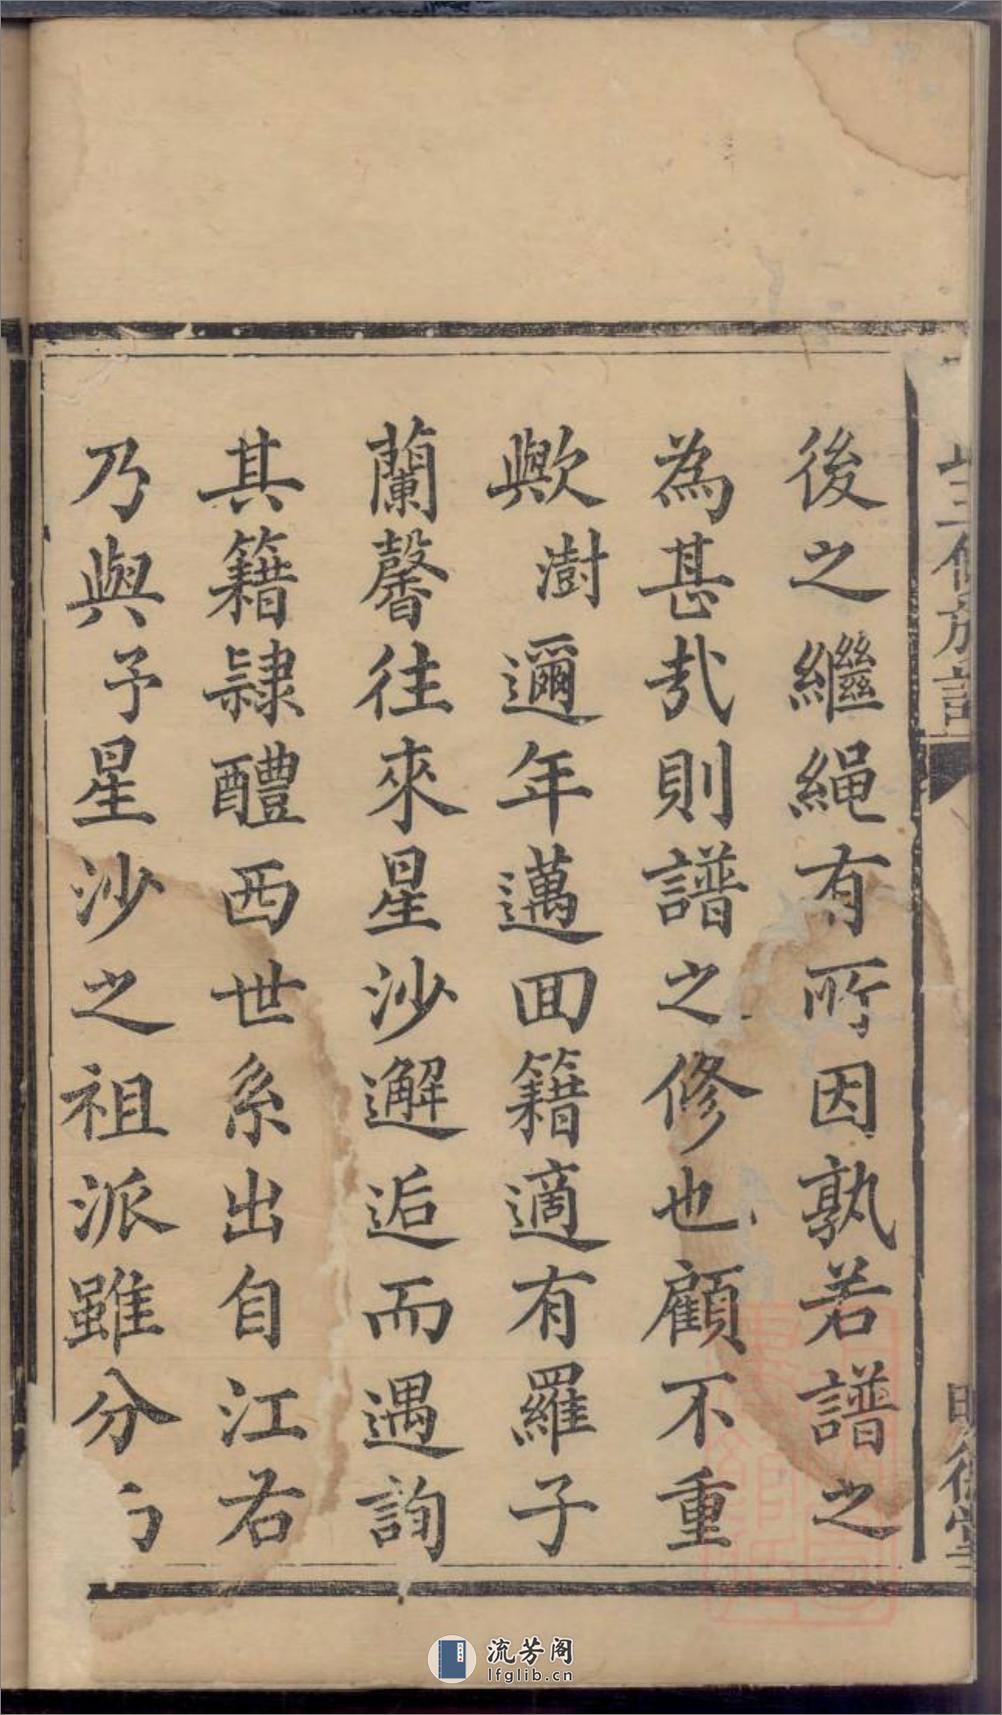 後之繼繩有所因孰若譜之
為甚㢤則譜之修也顧不重
歟澍邇年邁囬籍適有羅子
蘭馨往來星沙邂逅而遇詢
其籍隸醴西世系出自江右
乃與予星沙之祖派雖分
流芳阁
lfglib.cn